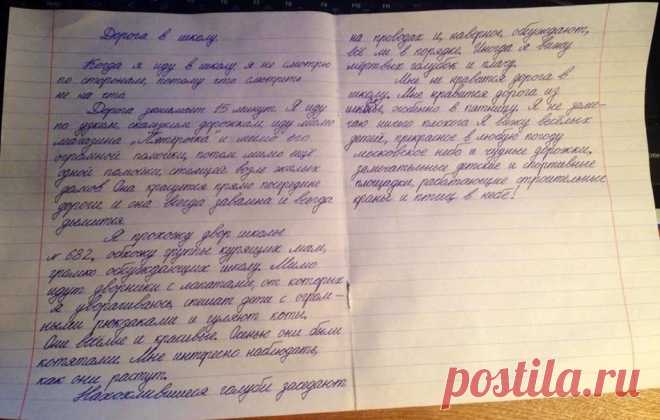 Дорога в школу.
Когда я иду в школу я не смотрю
по сторонам, потому что смотреть
не на что.
Дорога занимает 15 минут. Я иду
по узким, скользким дорожкам, иду мимо
магазина „Пятёрочка" и мимо его
огромной помойки, потом мимо ещё
одной помойки, стоящей возле жилых
домов. Она красуется прямо посередине
дороги и она всегда завалина и всегда
дымится.
Я прохожу двор школы
№ 682, обхожу группы курящих мам,
громко обсуждающих школу. Мимо
идут дворники с лопатами, от которых
я уворачиваюсь, спешат дети с огром-
ными рюкзаками и гуляют коты.
Они весёлые и красивые. Осенью они были
котятами. Мне интересно наблюдать,
как они растут.
Нахохлившиеся голуби заседают
на проводах и, наверное, обсуждают,
всё ли в порядке. Иногда я вижу
мёртвых голубей и плачу.
Мне не нравится дорога в
школу. Мне нравится дорога из
школы, особенно в пятницу. Я не заме-
чаю ничего плохого. Я вижу весёлых
детей, прекрасное в любую погоду
московское небо и чудные дорожки,
замечательные детские и спортивные
площадки, работающие строительные
краны и птиц в небе!
postila.ru